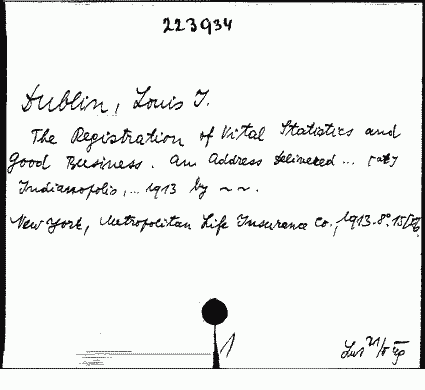 223934
Dublin, Louis I.
The Registration of Vital Statistics and
Good Business. An Address delivered ... [at]
Indianapolis, ... 1913 by ~ ~.
New York, Metropolitan Life Insurance Co., 1913. 8°. 15